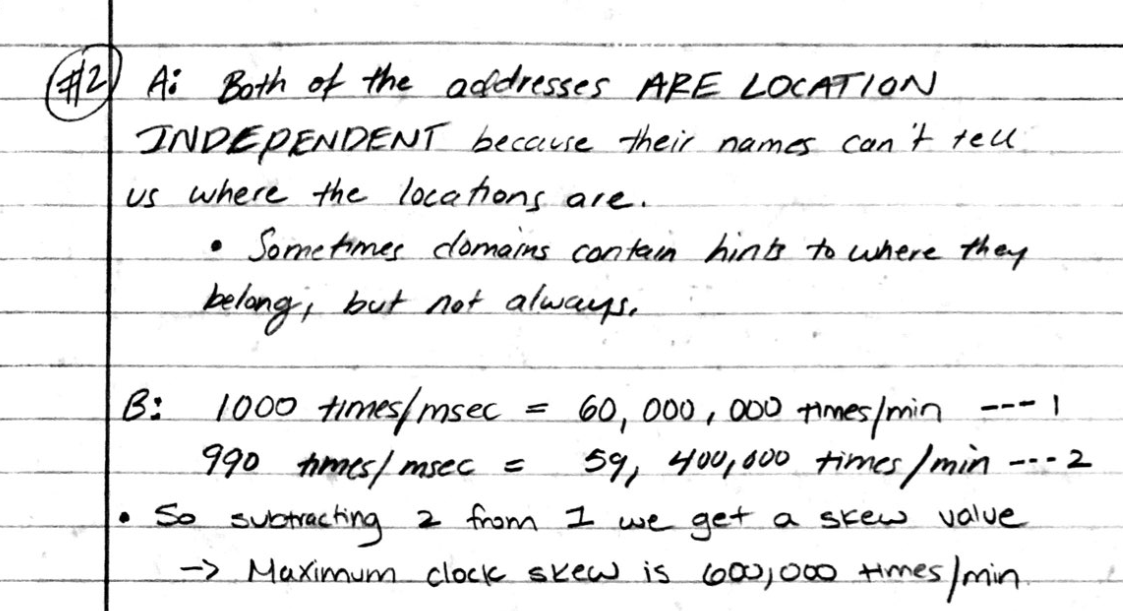 #2 A: Both of the addresses ARE LOCATION
INDEPENDENT because their names can't tell
us where the locations are.
• Sometimes domains contain hints to where they
belong, but not always.
B: 1000 times/msec = 60,000,000 times/min ---1
990 times/msec = 59,400,000 times/min ---2
• So subtracting 2 from 1 we get a skew value
-> Maximum clock skew is 600,000 times/min